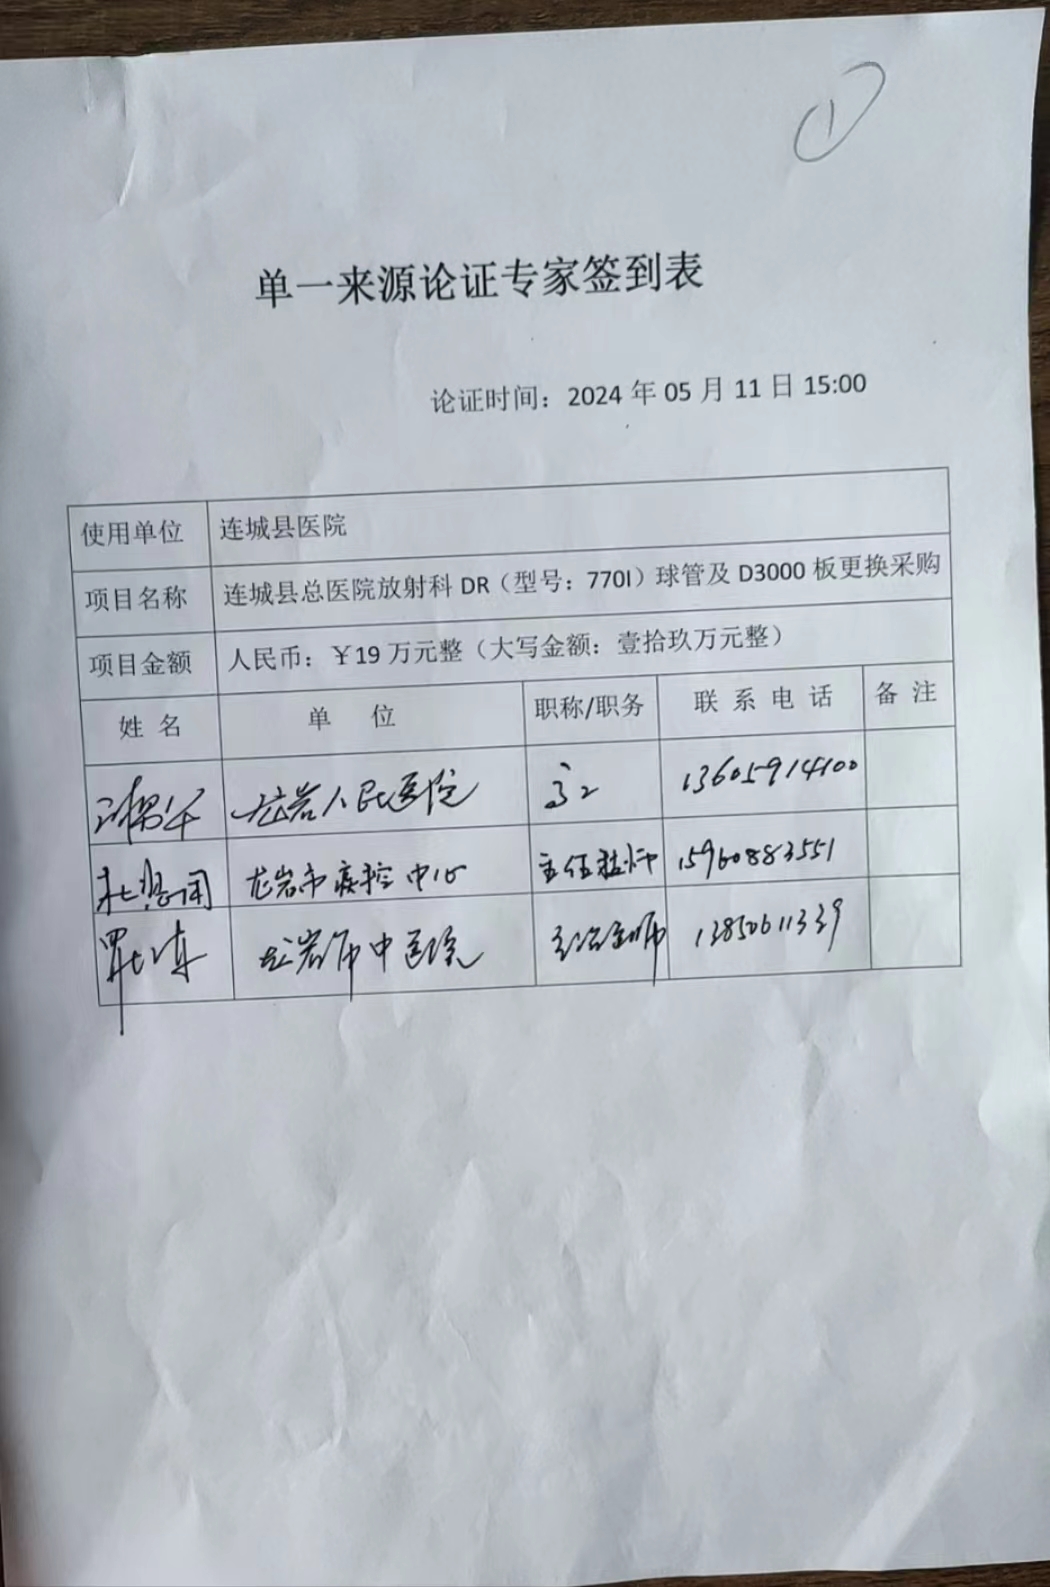 1
单一来源论证专家签到表
论证时间：2024 年 05 月 11 日 15:00
使用单位 连城县医院
项目名称 连城县总医院放射科 DR（型号：770I）球管及 D3000 板更换采购
项目金额 人民币：￥19 万元整（大写金额：壹拾玖万元整）
姓 名 单 位 职称/职务 联 系 电 话 备 注
龙岩人民医院 高工 13605914100
龙岩市疾控中心 主任技师 15960883551
龙岩市中医院 13850611339